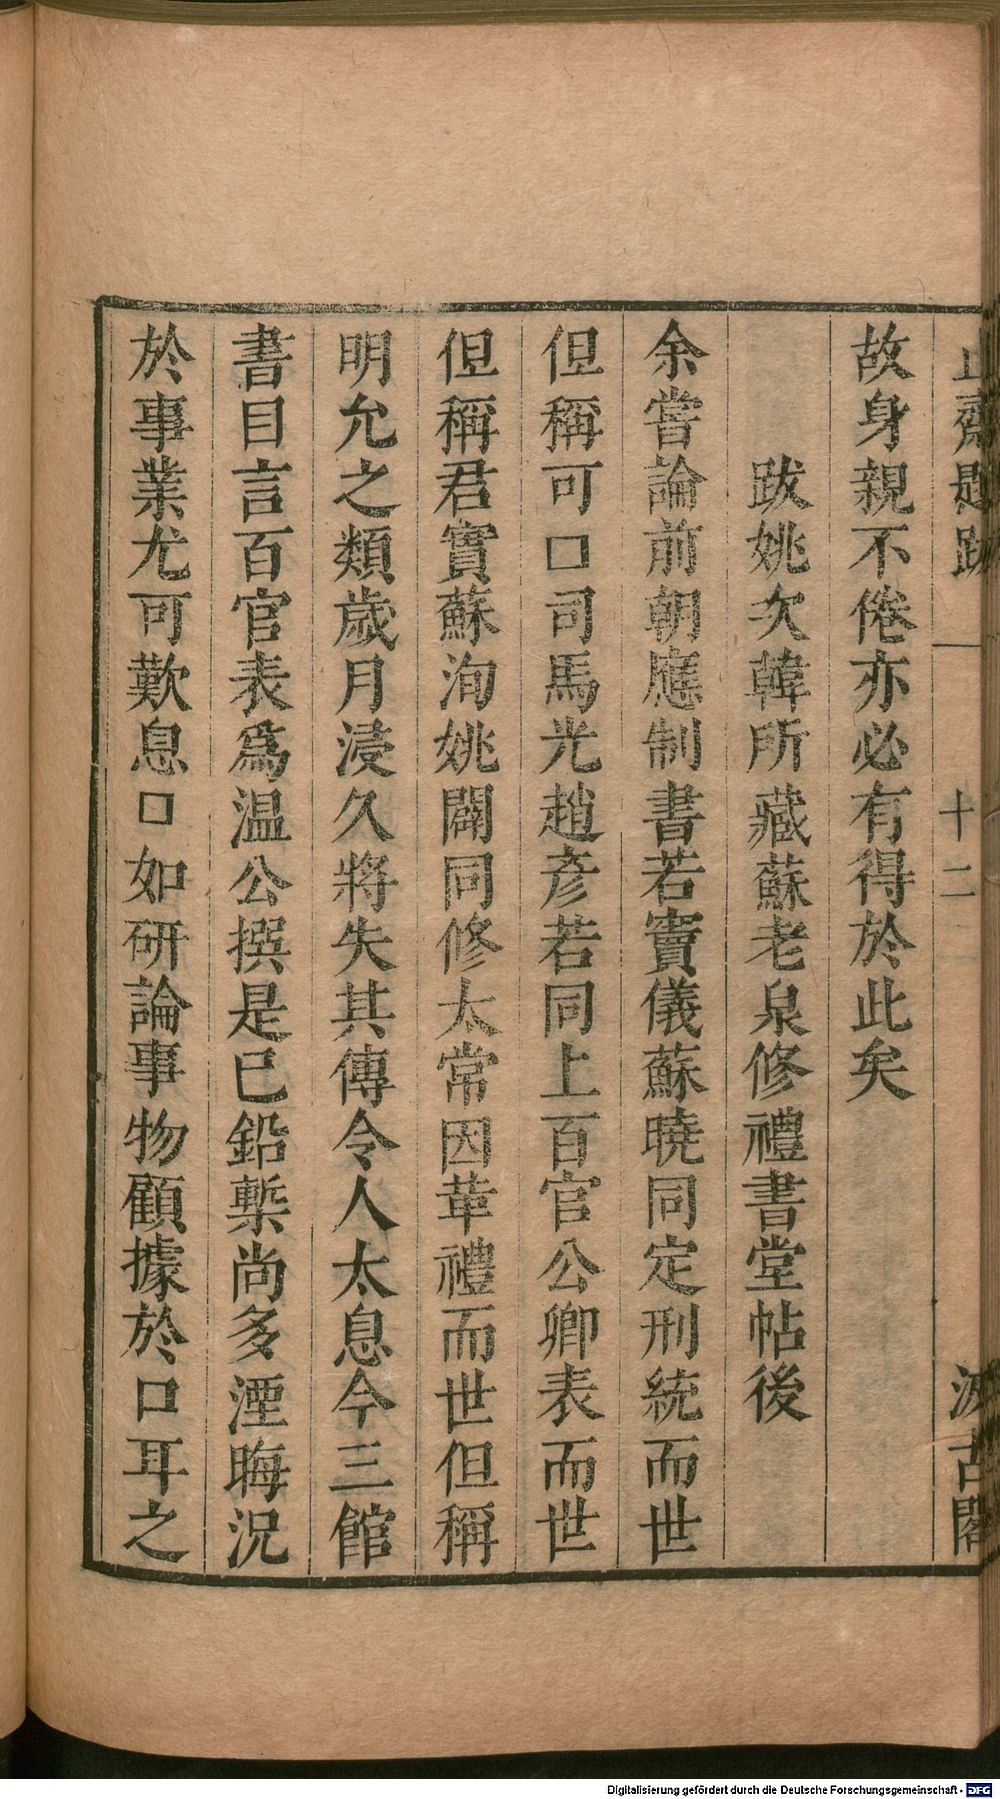 止齋題跋 十二 汲古閣
故身親不倦亦必有得於此矣
跋姚次韓所藏蘇老泉修禮書堂帖後
余嘗論前朝應制書若竇儀蘇曉同定刑統而世
但稱可口司馬光趙彥若同上百官公卿表而世
但稱君實蘇洵姚闢同修太常因革禮而世但稱
明允之類歲月浸久將失其傳令人太息今三館
書目言百官表爲温公撰是已鉛槧尚多湮晦况
於事業尤可歎息口如硏論事物顧據於口耳之
Digitalisierung gefördert durch die Deutsche Forschungsgemeinschaft - DFG